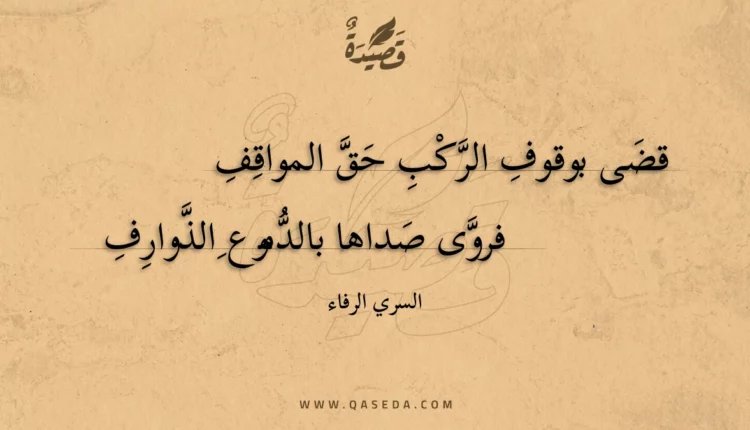 قَصِيْدَةٌ
قضَى بوقوفِ الرَّكْبِ حَقَّ المواقِفِ
فروَّى صَداها بالدُّموع ِالذَّوارِفِ
السري الرفاء
WWW.QASEDA.COM